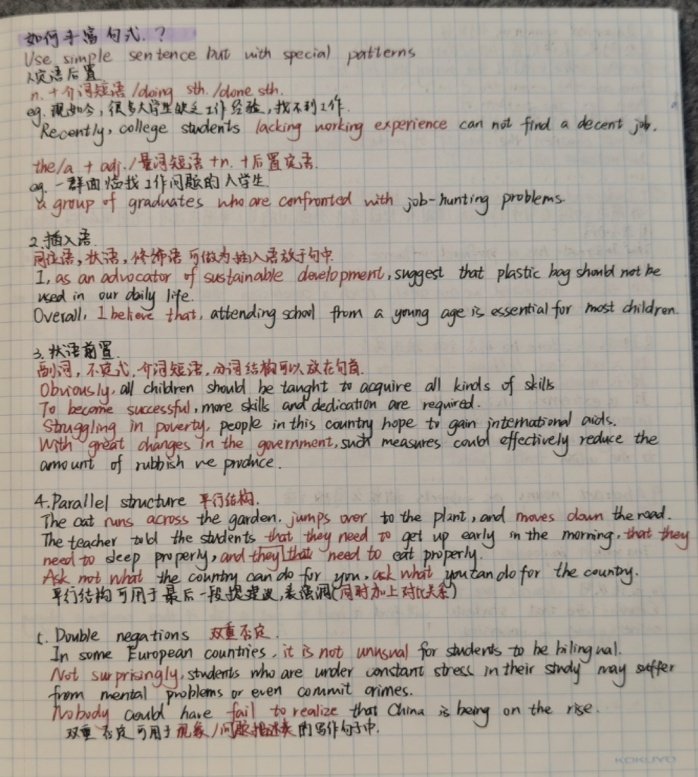 如何丰富句式.?
Use simple sentence but with special patterns
1.定语后置
n.+介词短语/doing sth./done sth.
eg. 现如今,很多大学生缺乏工作经验,找不到工作.
Recently, college students lacking working experience can not find a decent job.
the/a + adj./量词短语+n.+后置定语.
eg. 一群面临找工作问题的大学生
a group of graduates who are confronted with job-hunting problems.
2.插入语.
同位语,状语,修饰语可做为插入语放于句中.
I, as an advocator of sustainable development, suggest that plastic bag should not be
used in our daily life.
Overall, I believe that, attending school from a young age is essential for most children.
3.状语前置.
副词,不定式,介词短语,分词结构可以放在句首.
Obviously, all children should be taught to acquire all kinds of skills
To become successful, more skills and dedication are required.
Struggling in poverty, people in this country hope to gain international aids.
With great changes in the government, such measures could effectively reduce the
amount of rubbish we produce.
4.Parallel structure 平行结构.
The cat runs across the garden, jumps over to the plant, and moves down the road.
The teacher told the students that they need to get up early in the morning, that they
need to sleep properly, and they that need to eat properly.
Ask not what the country can do for you, ask what you can do for the country.
平行结构可用于最后一段提建议,表强调(同时加上对比关系)
5. Double negations 双重否定.
In some European countries, it is not unusual for students to be bilingual.
Not surprisingly, students who are under constant stress in their study may suffer
from mental problems or even commit crimes.
Nobody could have fail to realize that China is being on the rise.
双重否定可用于现象/问题描述类的写作句子中.
KOKUYO